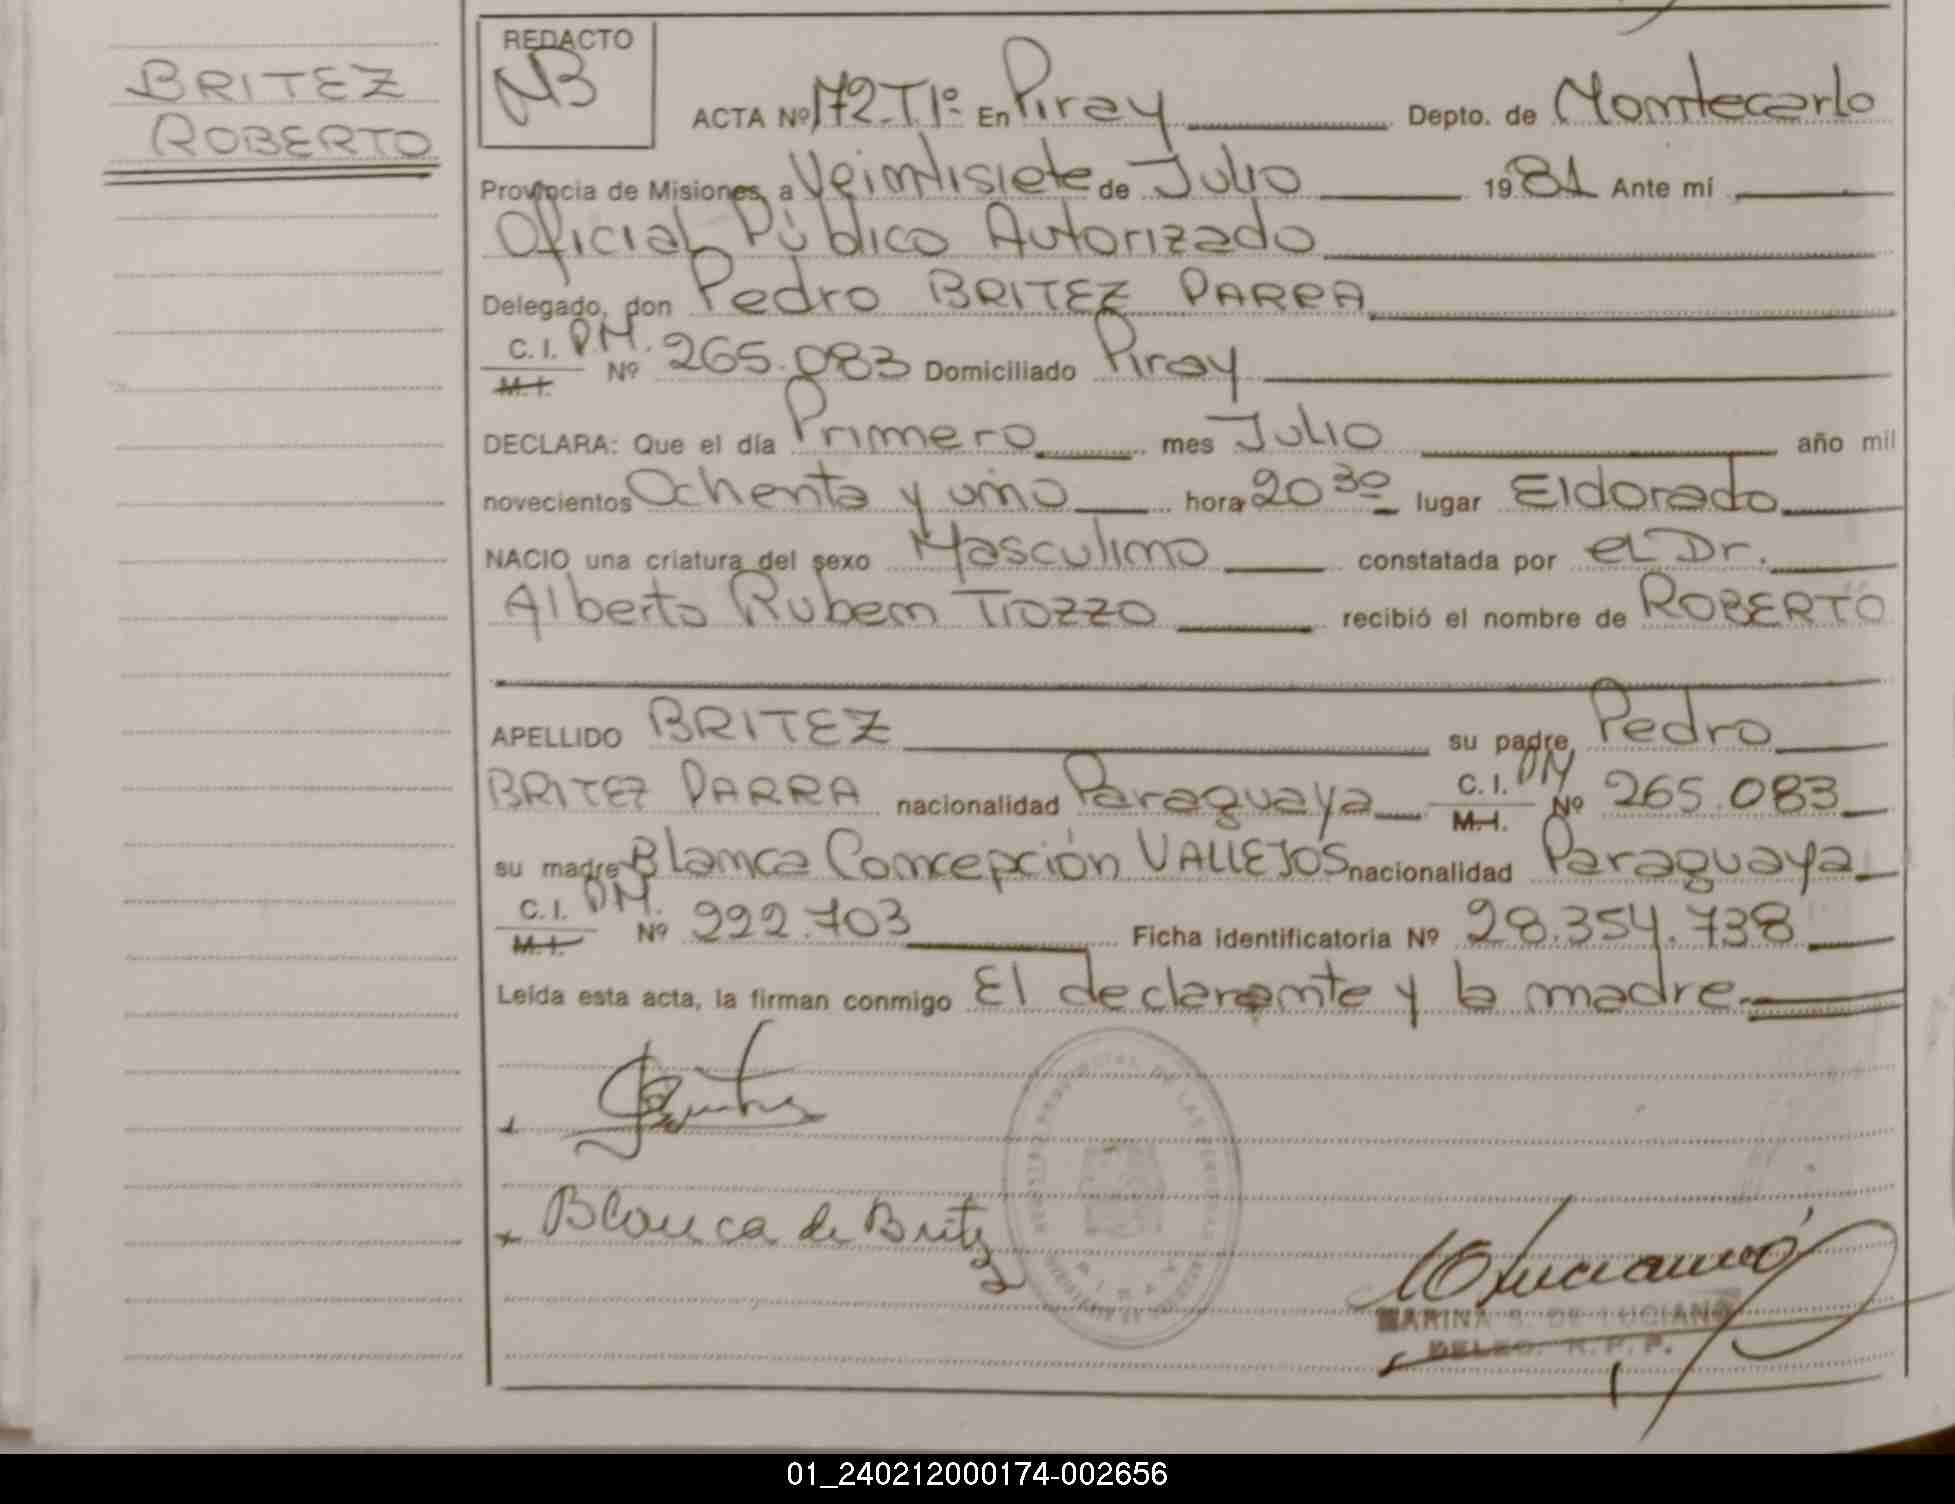 BRITEZ
ROBERTO
REDACTO
ACTA Nº 172-T1º En Piray Depto. de Montecarlo
Provincia de Misiones, a Veintisiete de Julio 1981 Ante mí
Oficial Público Autorizado
Delegado, don Pedro BRITEZ PARRA
C. I. D.M.
M. I. Nº 265.083 Domiciliado Piray
DECLARA: Que el día Primero mes Julio año mil
novecientos Ochenta y uno hora 20 30 lugar Eldorado
NACIO una criatura del sexo Masculino constatada por el Dr.
Alberto Ruben Trozzo recibió el nombre de ROBERTO
APELLIDO BRITEZ su padre, Pedro
BRITEZ PARRA nacionalidad Paraguaya C. I. DM M. I. Nº 265.083
su madre Blanca Concepción VALLEJOS nacionalidad Paraguaya
C. I. DM.
M. I. Nº 222.703 Ficha identificatoria Nº 28.354.738
Leída esta acta, la firman conmigo El declarante y la madre.
Blanca de Britez
MARINA S. DE LUCIANO
DELEG. R. P. P.
01_240212000174-002656